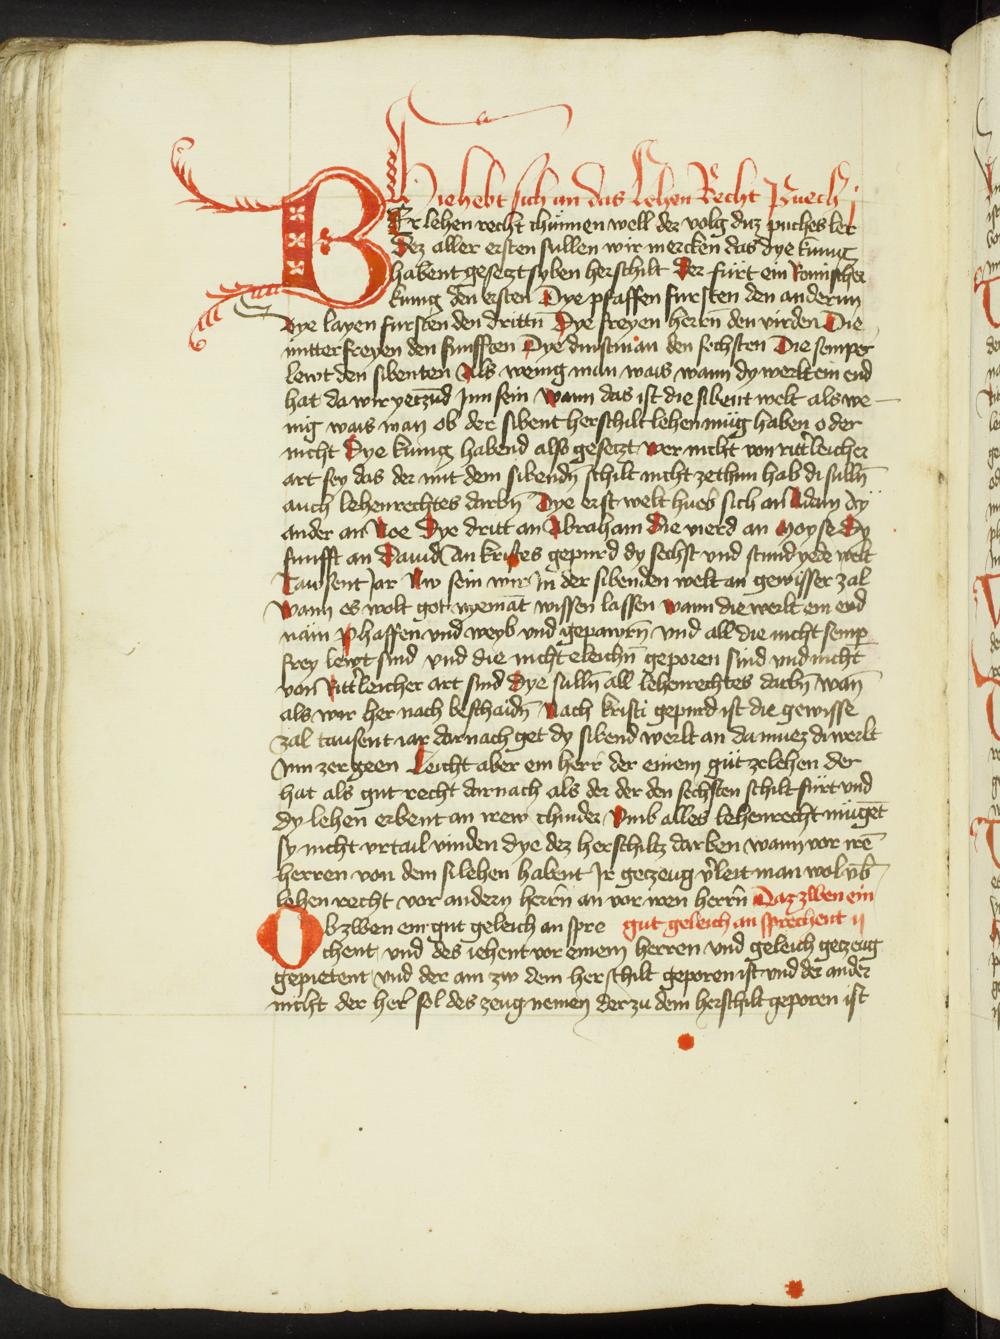 Hie hebt sich an das Lehen Recht Puech j
BEr lehen recht chünnen well der volg diz puches ler
Dez aller ersten sullen wir mercken das dye kunig
habent gesetzt syben herschilt Der fürt ein Romischer
kunig den ersten Dye pfaffen fursten den anderun
Dye layen fursten den drittn̄ Dye freyen herrn̄ den virden Die
mitter freyen den funfften Dye dinstman den sechsten Die semper
lewt den sibenten Als wenig man wais wann dy werlt ein end
hat da wir yeczūd Inn sein Wann das ist die sibent welt als we
nig wais man ob der sibent herschilt lehen müg haben oder
nicht Dye kunig habend also gesetzt wer nicht von ritt̄leicher
art sey das der mit dem sibendn̄ schilt nicht zethun hab di sulln̄
auch lehenrechtes darbn̄ Dye erst welt hueb sich an Adam dy
ander an Noe Dye dritt an Abraham Die vierd an Moyse Dy
funfft an Dauid An kristes gepurd dy sechst vnd stund yede welt
Tawsent Jar Nw sein wir In der sibenden welt an gewisser zal
Wann es wolt got nyemāt wissen lassen wann die werlt ein end
näm Phaffen vnd weyb vnd gepawrn̄ vnd all die nicht semp̄
frey lewt sind vnd die nicht eleichn̄ geporen sind vnd nicht
von Ritt̄leicher art sind Dye sulln̄ all lehenrechtes darbn̄ wan̄
als wir her nach beschaidn̄ Nach kristi gepurd ist die gewisse
zal tausent iar darnach get dy sibend werlt an da muez di werlt
Inn zergeen Leicht aber ein herr der einem güt ze lehen der
hat als gut recht darnach als der der den sechsten schilt fürt vnd
dy lehen erbent an irew chinder Vmb alles lehenrecht mügēt
sy nicht vrtail vinden dye dez herschiltz darben wann vor irē
herren von dem si lehen habent Ir geczeug v̄leit man wol vb̄
lehen recht vor andern herrn̄ an vor iren herrn̄ Daz zwen ein
Ob zwen ein gut geleich an spre gut geleich an sprechent ij
chent vnd des iehent vor einem herren vnd geleich geczeug
gepietent vnd der ain zw dem herschilt geporen ist vnd der ander
nicht der her̄ sol des zeug nemen der zu dem herschilt geporen ist